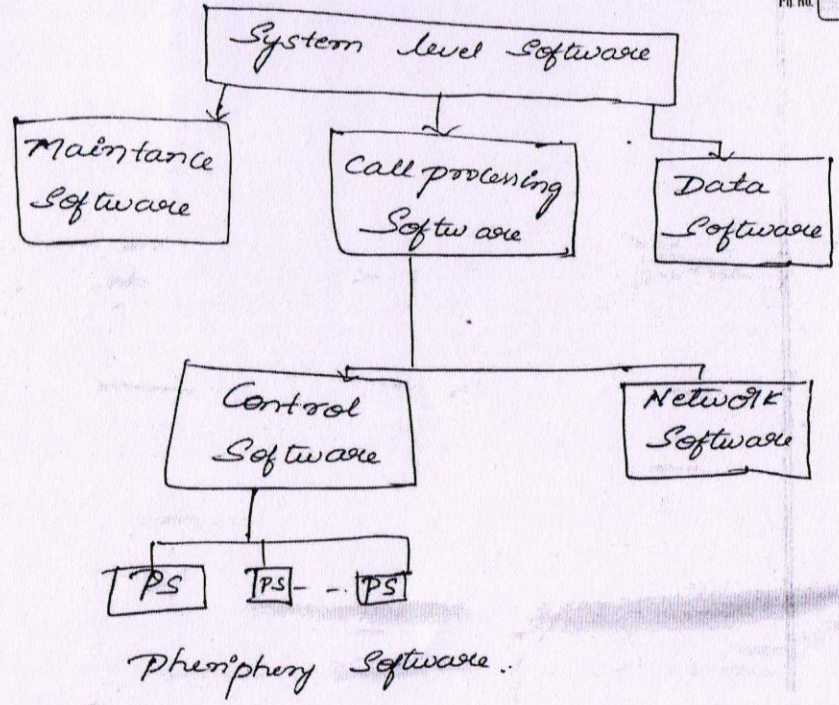 Ph. No.
System level Software
Maintance
Software
Call processing
Software
Data
Software
Control
Software
Network
Software
PS PS - - PS
Pheriphery Software.